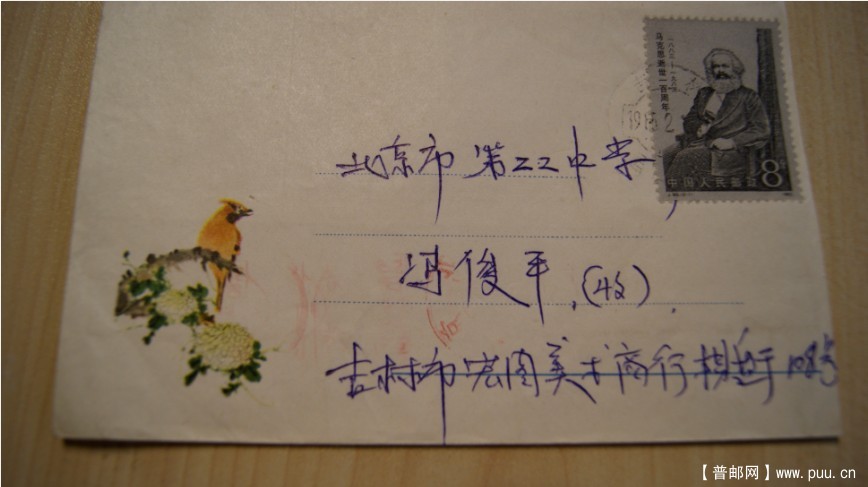 马克思逝世一百周年
一八八三—一九八三
中国人民邮政
8分
北京市 第22中学
冯俊平 (收)
吉林市宏图美术商行
【普邮网】www.puu.cn